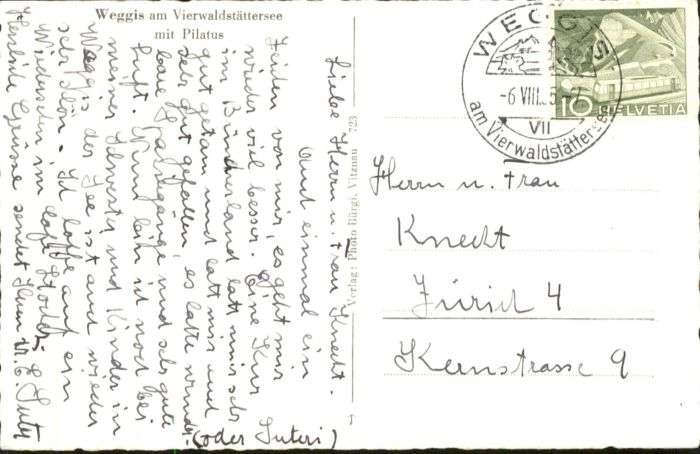 Weggis am Vierwaldstättersee
mit Pilatus
Liebe Herrn u. Frau Knecht.
Auch einmal ein
Zeichen von mir, es geht mir
wieder viel besser. Eine Kur
im Bündnerland hatt mir sehr
gut getan und hatt mir auch
sehr gut gefallen, es hatte wunder
bare Spaziergänge und sehr gute
Luft. Nun bin ich noch bei
meiner Schwester und Kinder in
Weggis der See ist auch wieder
sehr schön. Ich hoffe auf ein
Wiedersehn im Café
Herzliche Grüsse sendet Ihnen E. Suter
(oder Suteri)
Verlag: Photo Bürgi, Vitznau 723
WEGGIS
-6 VIII. 5
VII
am Vierwaldstättersee
10 HELVETIA
Herrn u. Frau
Knecht
Zürich 4
Kernstrasse 9